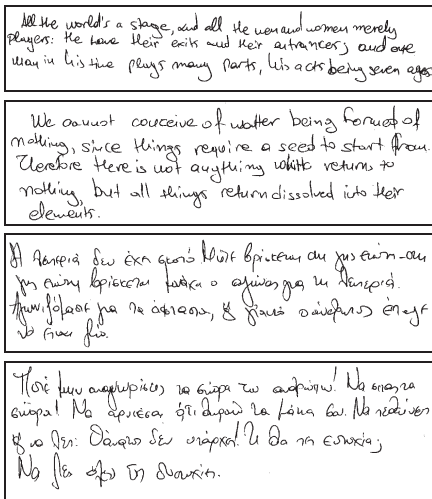 All the world's a stage, and all the men and women merely
players: the have their exits and their entrances; and one
man in his time plays many parts, his acts being seven ages
We cannot conceive of matter being formed of
nothing, since things require a seed to start from.
Therefore there is not anything which returns to
nothing, but all things return dissolved into their
elements.
Η λευτεριά δεν έχει σκοπό. Μήτε βρίσκεται στη γης
γης ετούτη βρίσκεται μονάχα ο αγώνας για τη λευτεριά.
για τα άφταστα, γι'αυτό ο άνθρωπος έπαψε
να είναι ζώο.
Ποτέ μην αναγνωρίσεις τα σύνορα του ανθρώπου! Να σπας τα
σύνορα! Να αρνιέσαι ότι θωρούν τα μάτια σου. Να πεθαίνεις
να λες: Θάνατος δεν υπάρχει! Τι θα πει ευτυχία;
Να ζεις όλες τις δυστυχίες.